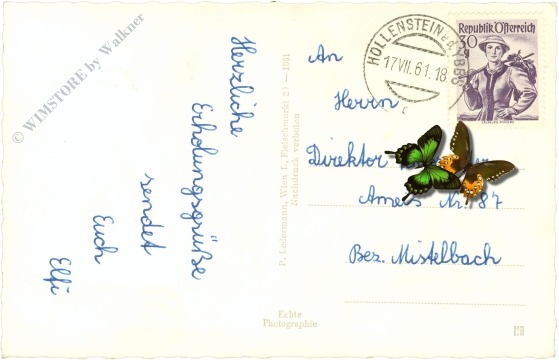 © WIMSTORE by Walkner
Herzliche
Erholungsgrüße
sendet
Euch
Elfi
P. Ledermann, Wien I., Fleischmarkt 20 — 1961
Nachdruck verboten
Echte
Photographie
HOLLENSTEIN a.d. YBBS
17.VII.61.18
Republik Österreich
30
An
Herrn
Direktor
Ameis Nr. 87
Bez. Mistelbach